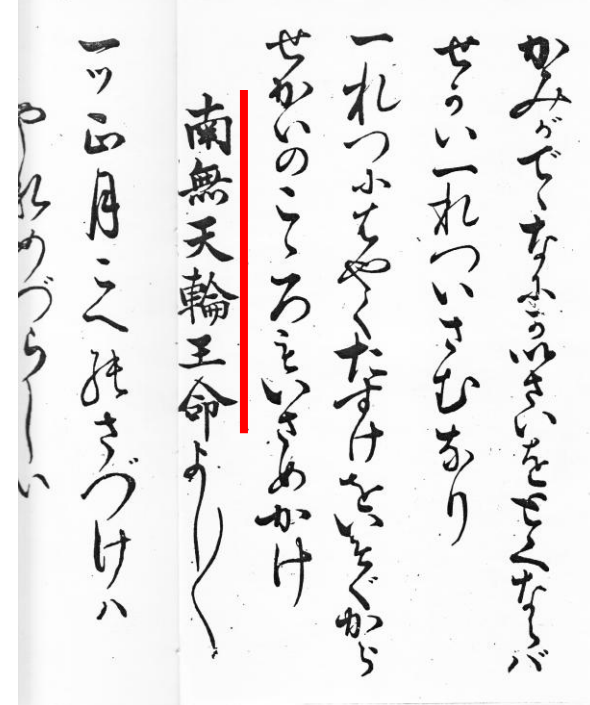 かみがでゝなにかいさいをとくならバ
せかい一れついさむなり
一れつにはやくたすけをいそぐから
せかいのこゝろもいさめかけ
南無天輪王命よし〳〵
一ッ正月こへのさづけハ
やれめづらしい